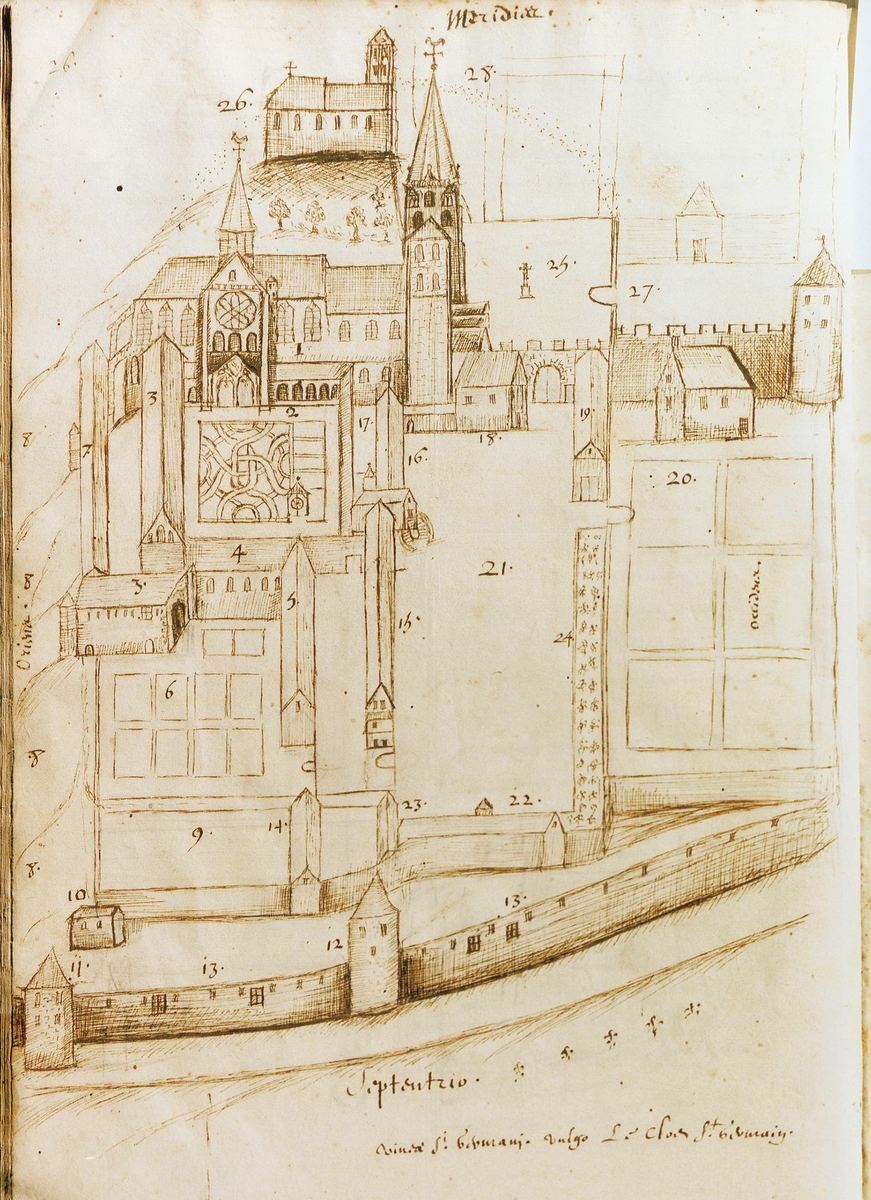 Meridies.
26.
28.
26.
25.
27.
1
3
2
17.
19.
7
16.
18.
20.
4
21.
8
8
3.
5.
15.
24
Oriens.
occidens
6
8
23.
22.
14.
9.
8.
10
13.
12
11.
13.
Septentrio.
vinea S.ti Germani. vulgo Le clos S.t Germain.